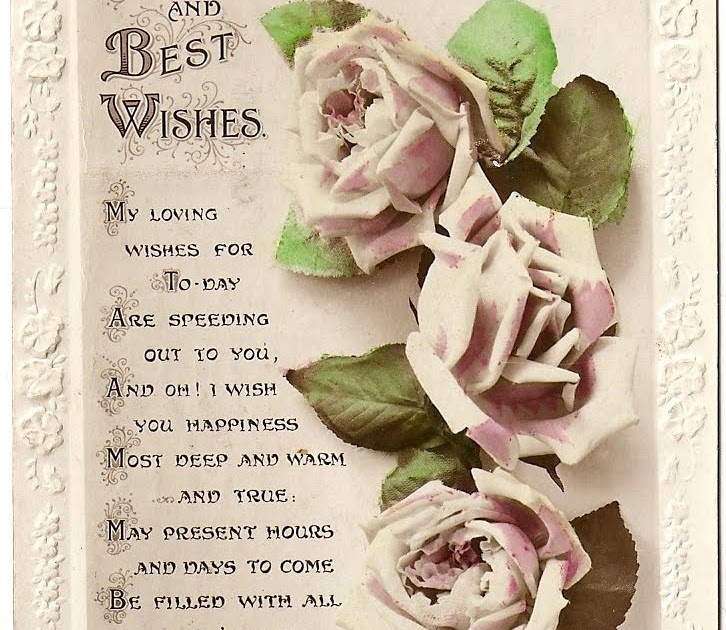 AND
BEST
WISHES.
MY LOVING
WISHES FOR
TO-DAY
ARE SPEEDING
OUT TO YOU,
AND OH! I WISH
YOU HAPPINESS
MOST DEEP AND WARM
AND TRUE:
MAY PRESENT HOURS
AND DAYS TO COME
BE FILLED WITH ALL